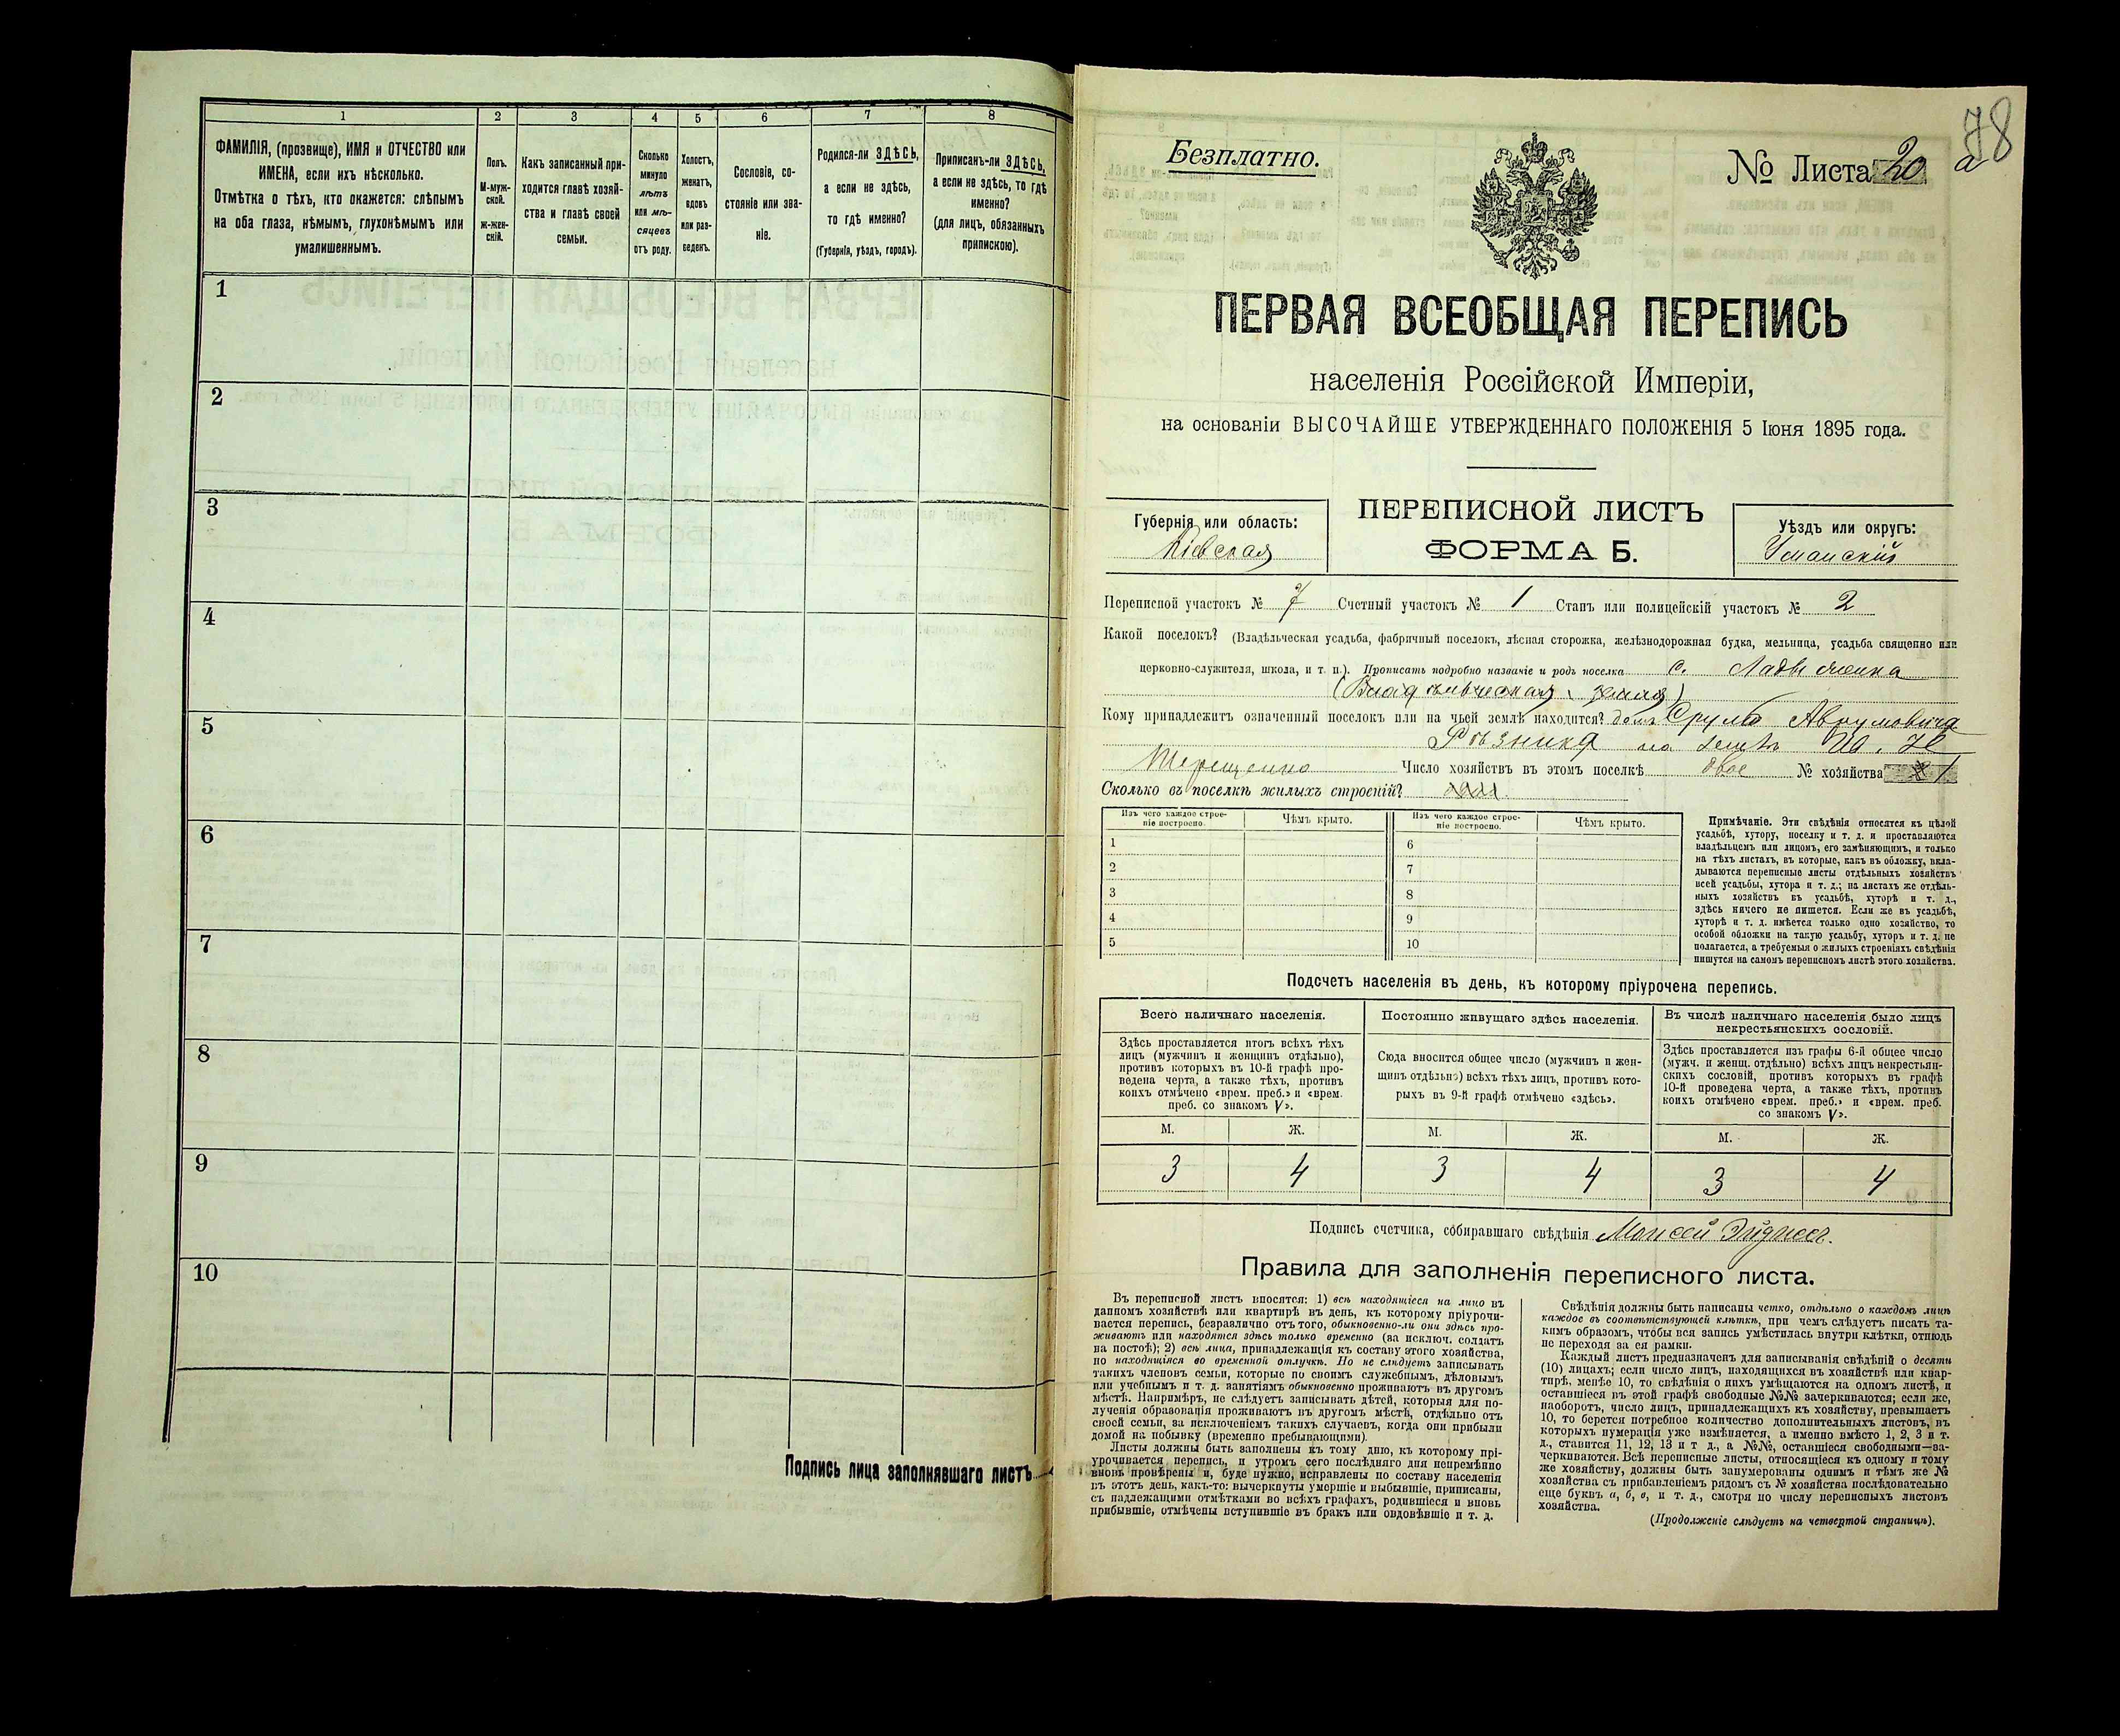 1
2
3
4
5
6
7
8
ФАМИЛІЯ, (прозвище), ИМЯ и ОТЧЕСТВО или
ИМЕНА, если ихъ нѣсколько.
Отмѣтка о тѣхъ, кто окажется: слѣпымъ
на оба глаза, нѣмымъ, глухонѣмымъ или
умалишеннымъ.
Полъ.
М-муж-
ской.
Ж-жен-
скій.
Какъ записанный при-
ходится главѣ хозяй-
ства и главѣ своей
семьи.
Сколько
минуло
лѣтъ
или мѣ-
сяцевъ
отъ роду.
Холостъ,
женатъ,
вдовъ
или раз-
веденъ.
Сословіе, со-
стояніе или зва-
ніе.
Родился-ли ЗДѢСЬ,
а если не здѣсь,
то гдѣ именно?
(Губернія, уѣздъ, городъ).
Приписанъ-ли ЗДѢСЬ,
а если не здѣсь, то гдѣ
именно?
(для лицъ, обязанныхъ
припискою).
1
2
3
4
5
6
7
8
9
10
Подпись лица заполнявшаго листъ
78
Безплатно.
№ Листа 20 а
ПЕРВАЯ ВСЕОБЩАЯ ПЕРЕПИСЬ
населенія Россійской Имперіи,
на основаніи ВЫСОЧАЙШЕ УТВЕРЖДЕННАГО ПОЛОЖЕНІЯ 5 Іюня 1895 года.
Губернія или область:
Кіевская
ПЕРЕПИСНОЙ ЛИСТЪ
ФОРМА Б.
Уѣздъ или округъ:
Уманскій
Переписной участокъ № 7 Счетный участокъ № 1 Станъ или полицейскій участокъ № 2
Какой поселокъ? (Владѣльческая усадьба, фабричный поселокъ, лѣсная сторожка, желѣзнодорожная будка, мельница, усадьба священно или
церковно-служителя, школа, и т. п.). Прописать подробно названіе и родъ поселка с. Ладыженка
(Владѣльческая земля)
Кому принадлежитъ означенный поселокъ или на чьей землѣ находится? домъ Сруля Аврумовича
Рѣзника на землѣ
Терещенко Число хозяйствъ въ этомъ поселкѣ двое № хозяйства 1
Сколько въ поселкѣ жилыхъ строеній?
Изъ чего каждое строе-
ніе построено.
Чѣмъ крыто.
Изъ чего каждое строе-
ніе построено.
Чѣмъ крыто.
1
2
3
4
5
6
7
8
9
10
Примѣчаніе. Эти свѣдѣнія относятся къ цѣлой
усадьбѣ, хутору, поселку и т. д. и проставляются
владѣльцемъ или лицомъ, его замѣняющимъ, и только
на тѣхъ листахъ, въ которые, какъ въ обложку, вкла-
дываются переписные листы отдѣльныхъ хозяйствъ
всей усадьбы, хутора и т. д.; на листахъ же отдѣль-
ныхъ хозяйствъ въ усадьбѣ, хуторѣ и т. д.,
здѣсь ничего не пишется. Если же въ усадьбѣ,
хуторѣ и т. д. имѣется только одно хозяйство, то
особой обложки на такую усадьбу, хуторъ и т. д. не
полагается, а требуемыя о жилыхъ строеніяхъ свѣдѣнія
пишутся на самомъ переписномъ листѣ этого хозяйства.
Подсчетъ населенія въ день, къ которому пріурочена перепись.
Всего наличнаго населенія.
Постоянно живущаго здѣсь населенія.
Въ числѣ наличнаго населенія было лицъ
некрестьянскихъ сословій.
Здѣсь проставляется итогъ всѣхъ тѣхъ
лицъ (мужчинъ и женщинъ отдѣльно),
противъ которыхъ въ 10-й графѣ про-
ведена черта, а также тѣхъ, противъ
коихъ отмѣчено «врем. преб.» и «врем.
преб. со знакомъ V».
Сюда вносится общее число (мужчинъ и жен-
щинъ отдѣльно) всѣхъ тѣхъ лицъ, противъ кото-
рыхъ въ 9-й графѣ отмѣчено «здѣсь».
Здѣсь проставляется изъ графы 6-й общее число
(мужч. и женщ. отдѣльно) всѣхъ лицъ некрестьян-
скихъ сословій, противъ которыхъ въ графѣ
10-й проведена черта, а также тѣхъ, противъ
коихъ отмѣчено «врем. преб.» и «врем. преб.
со знакомъ V».
М. Ж. М. Ж. М. Ж.
3 4 3 4 3 4
Подпись счетчика, собиравшаго свѣдѣнія Моисей
Правила для заполненія переписного листа.
Въ переписной листъ вносятся: 1) всѣ находящіеся на лицо въ
данномъ хозяйствѣ или квартирѣ въ день, къ которому пріурочи-
вается перепись, безразлично отъ того, обыкновенно-ли они здѣсь про-
живаютъ или находятся здѣсь только временно (за исключ. солдатъ
на постоѣ); 2) всѣ лица, принадлежащія къ составу этого хозяйства,
но находящіяся во временной отлучкѣ. Но не слѣдуетъ записывать
такихъ членовъ семьи, которые по своимъ служебнымъ, дѣловымъ
или учебнымъ и т. д. занятіямъ обыкновенно проживаютъ въ другомъ
мѣстѣ. Напримѣръ, не слѣдуетъ записывать дѣтей, которыя для по-
лученія образованія проживаютъ въ другомъ мѣстѣ, отдѣльно отъ
своей семьи, за исключеніемъ такихъ случаевъ, когда они прибыли
домой на побывку (временно пребывающими).
Листы должны быть заполнены къ тому дню, къ которому прі-
урочивается перепись, и утромъ сего послѣдняго дня непремѣнно
вновь провѣрены и, буде нужно, исправлены по составу населенія
въ этотъ день, какъ-то: вычеркнуты умершіе и выбывшіе, приписаны,
съ надлежащими отмѣтками во всѣхъ графахъ, родившіеся и вновь
прибывшіе, отмѣчены вступившіе въ бракъ или овдовѣвшіе и т. д.
Свѣдѣнія должны быть написаны четко, отдѣльно о каждомъ лицѣ
каждое въ соотвѣтствующей клѣткѣ, при чемъ слѣдуетъ писать та-
кимъ образомъ, чтобы вся запись умѣстилась внутри клѣтки, отнюдь
не переходя за ея рамки.
Каждый листъ предназначенъ для записыванія свѣдѣній о десяти
(10) лицахъ; если число лицъ, находящихся въ хозяйствѣ или квар-
тирѣ, менѣе 10, то свѣдѣнія о нихъ умѣщаются на одномъ листѣ, и
оставшіеся въ этой графѣ свободные №№ зачеркиваются; если же,
наоборотъ, число лицъ, принадлежащихъ къ хозяйству, превышаетъ
10, то берется потребное количество дополнительныхъ листовъ, въ
которыхъ нумерація уже измѣняется, а именно вмѣсто 1, 2, 3 и т.
д., ставится 11, 12, 13 и т д., а №№, оставшіеся свободными—за-
черкиваются. Всѣ переписные листы, относящіеся къ одному и тому
же хозяйству, должны быть занумерованы однимъ и тѣмъ же №
хозяйства съ прибавленіемъ рядомъ съ № хозяйства послѣдовательно
еще буквъ а, б, в, и т. д., смотря по числу переписныхъ листовъ
хозяйства.
(Продолженіе слѣдуетъ на четвертой страницѣ).